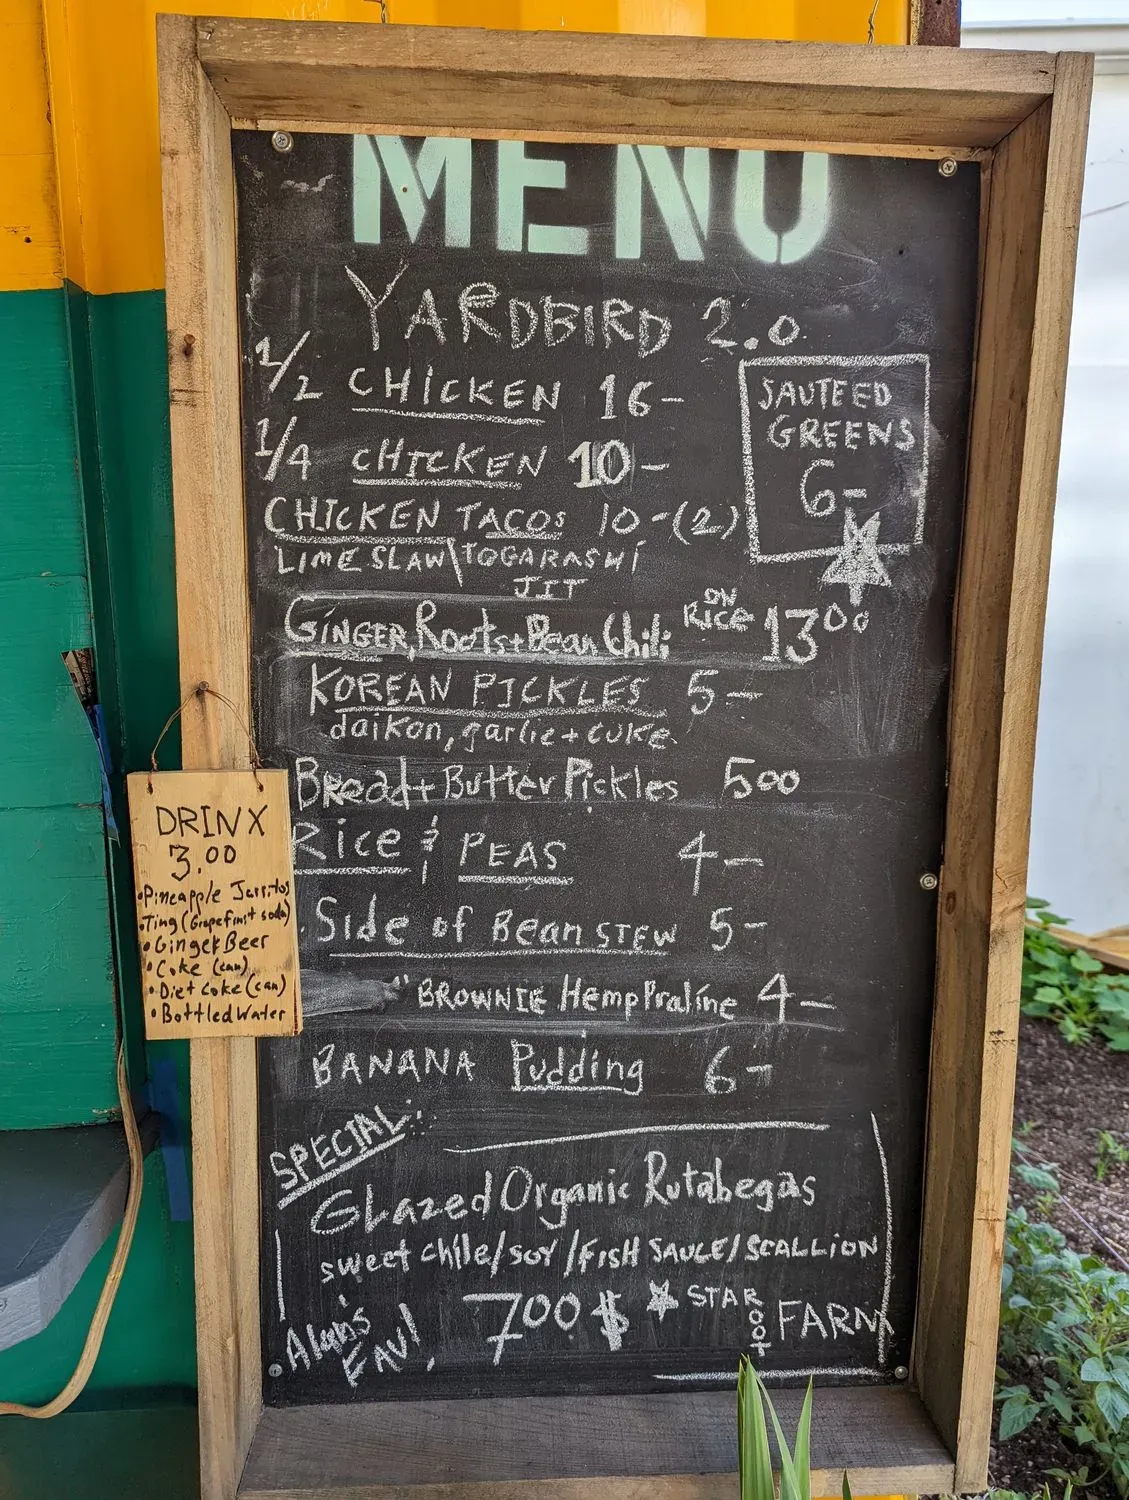 MENU
YARDBIRD 2.0
1/2 CHICKEN 16-
1/4 CHICKEN 10-
SAUTEED
GREENS
6-
CHICKEN TACOS 10-(2)
LIME SLAW\TOGARASHI
JIT
GINGER, Roots + Bean Chili ON RICE 1300
KOREAN PICKLES 5-
daikon, garlic + cuke.
Bread + Butter Pickles 500
Rice & PEAS 4-
Side of Bean STEW 5-
"BROWNIE Hemp Praline 4-
BANANA Pudding 6-
SPECIAL:
GLazed Organic Rutabegas
sweet chile/soy/FISH SAUCE/SCALLION
700$
STAR ROOT FARM
FAV!
DRINX
3.00
•Pineapple Jarritos
•Ting (Grapefruit soda)
•Ginger Beer
•Coke (can)
•Diet Coke (can)
•Bottled Water